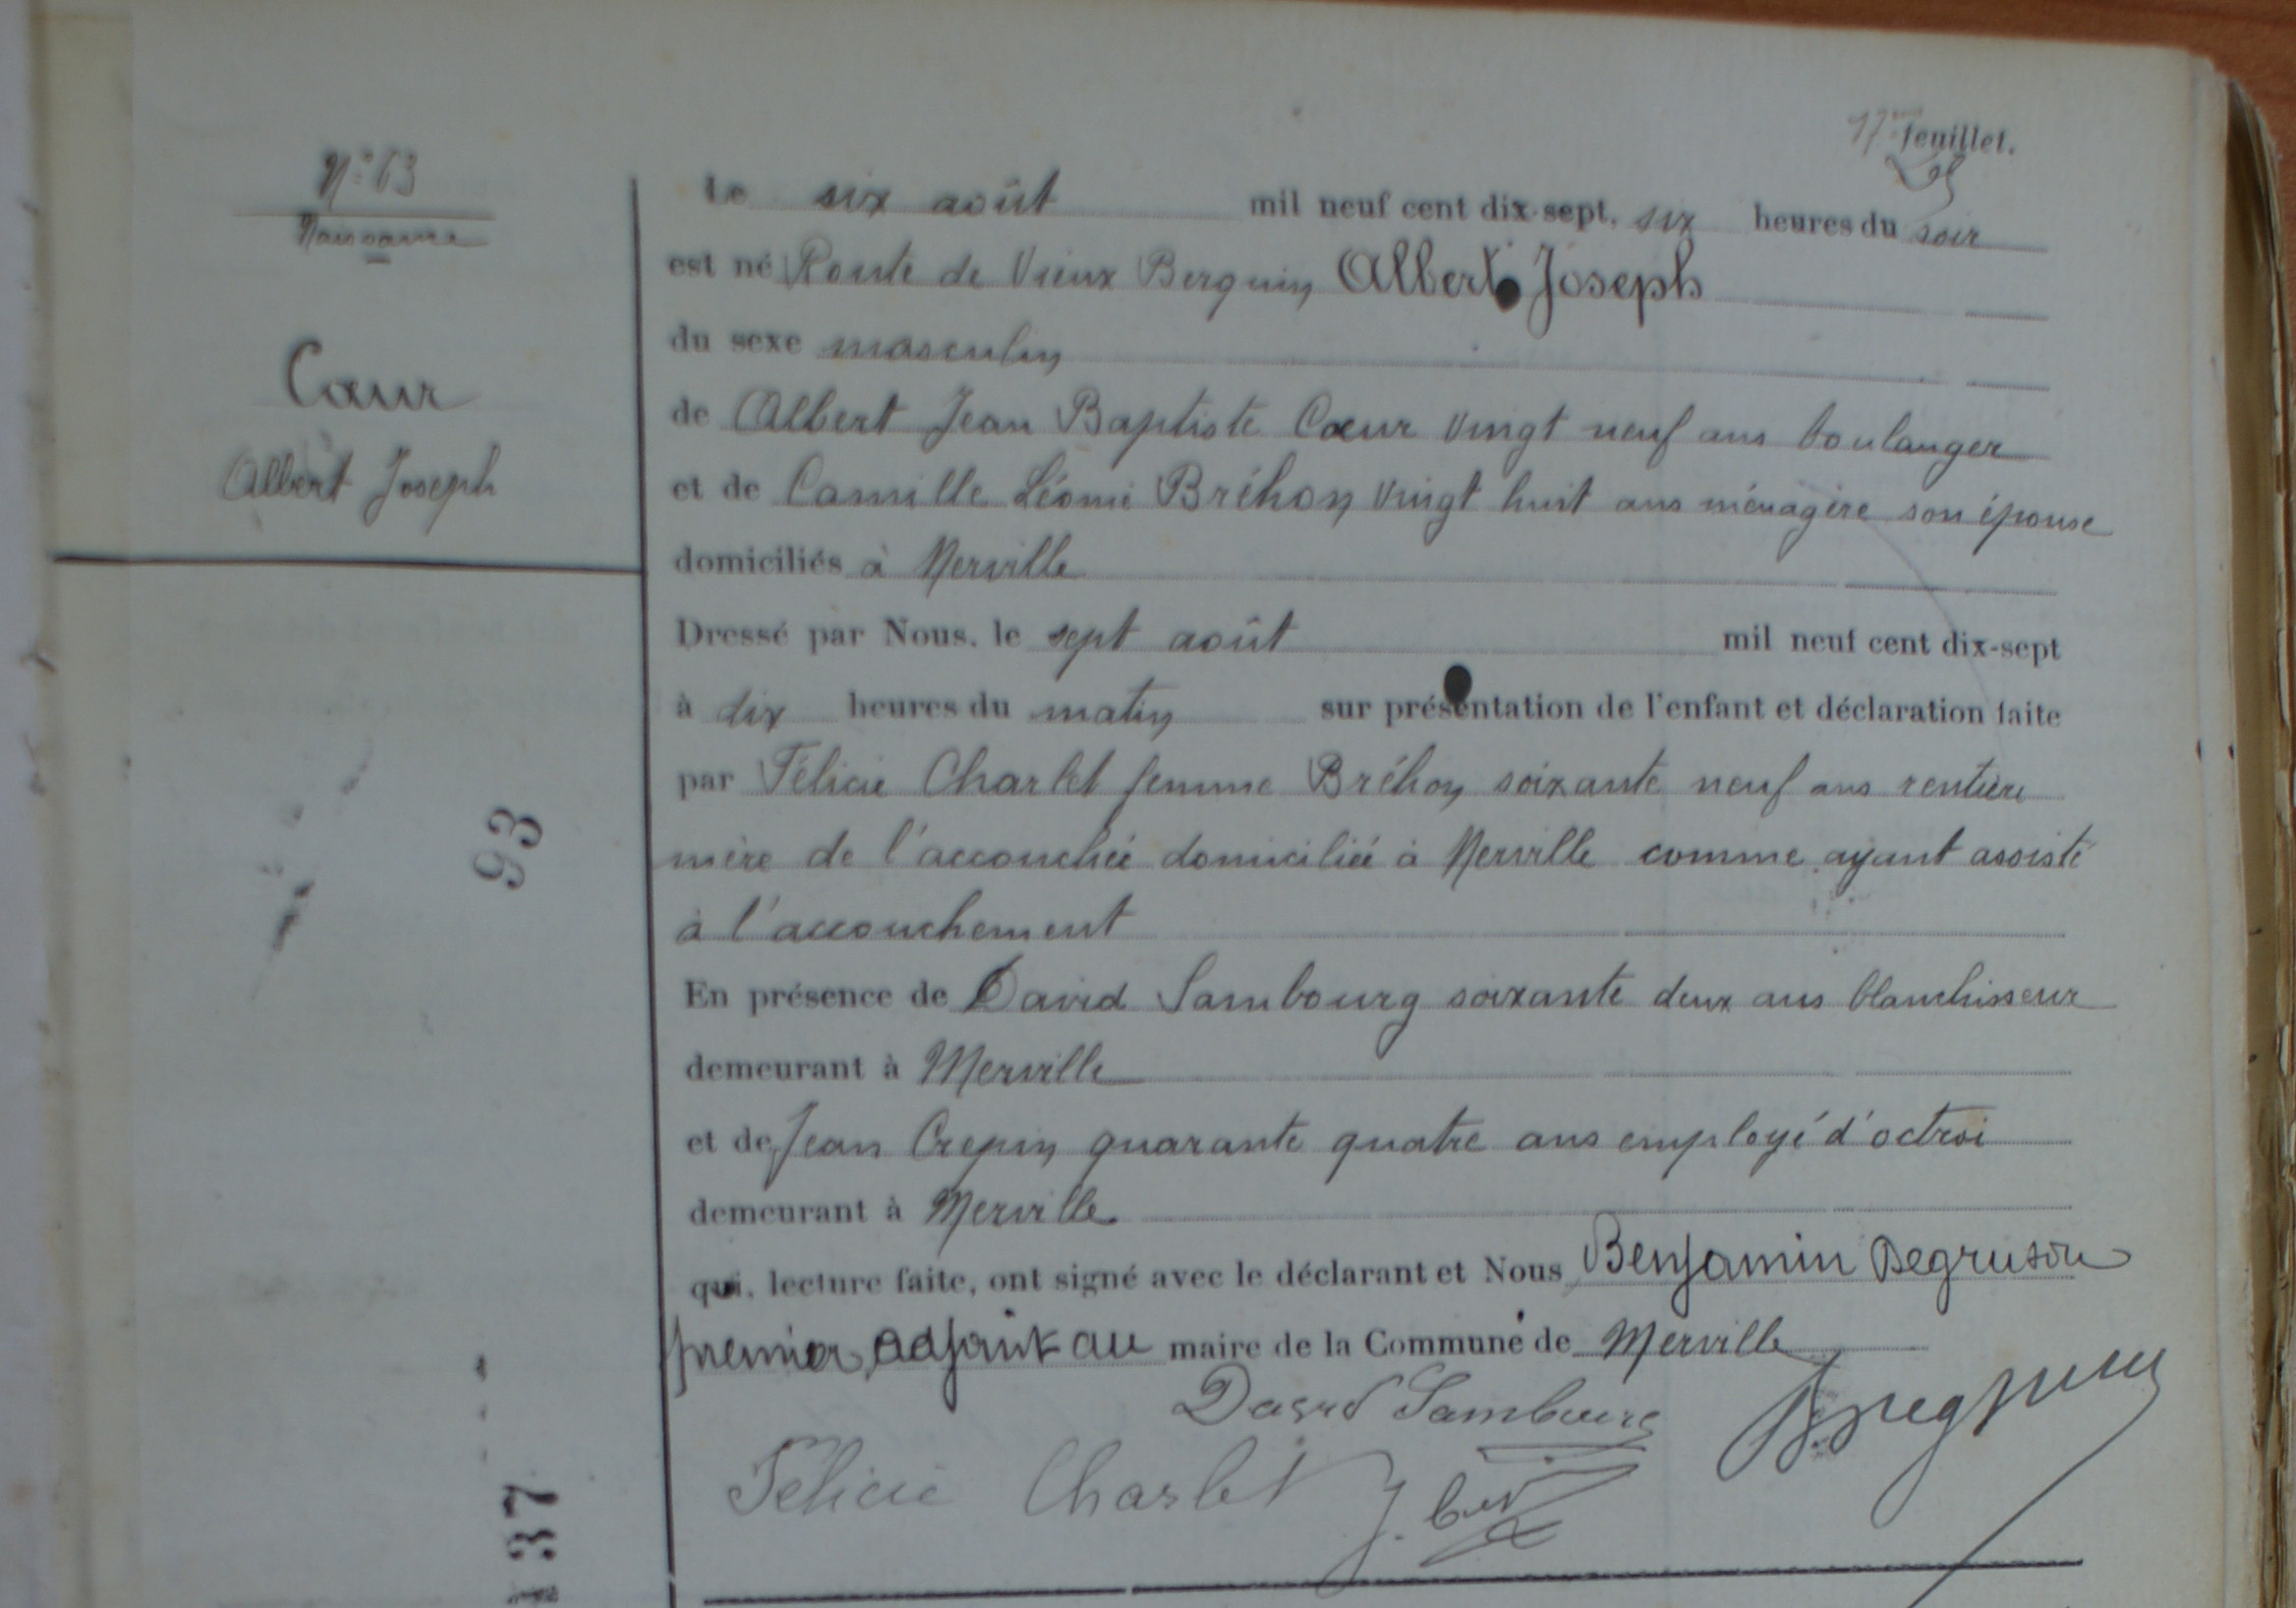 17me feuillet.
N° 63
Naissance
Cœur
Albert Joseph
93
37
Le six août mil neuf cent dix-sept, six heures du soir
est né Route de Vieux Berquin Albert Joseph
du sexe masculin
de Albert Jean Baptiste Cœur vingt neuf ans boulanger
et de Camille Léonie Bréhon vingt huit ans ménagère son épouse
domiciliés à Merville
Dressé par Nous, le sept août mil neuf cent dix-sept
à dix heures du matin sur présentation de l'enfant et déclaration faite
par Félicie Charlet femme Bréhon soixante neuf ans rentière
mère de l'accouchée domiciliée à Merville comme ayant assisté
à l'accouchement
En présence de David Sambourg soixante deux ans blanchisseur
demeurant à Merville
et de Jean Crepin quarante quatre ans employé d'octroi
demeurant à Merville
qui, lecture faite, ont signé avec le déclarant et Nous Benjamin Degruson
premier adjoint au maire de la Commune de Merville
David Sambourg
Félicie Charlet